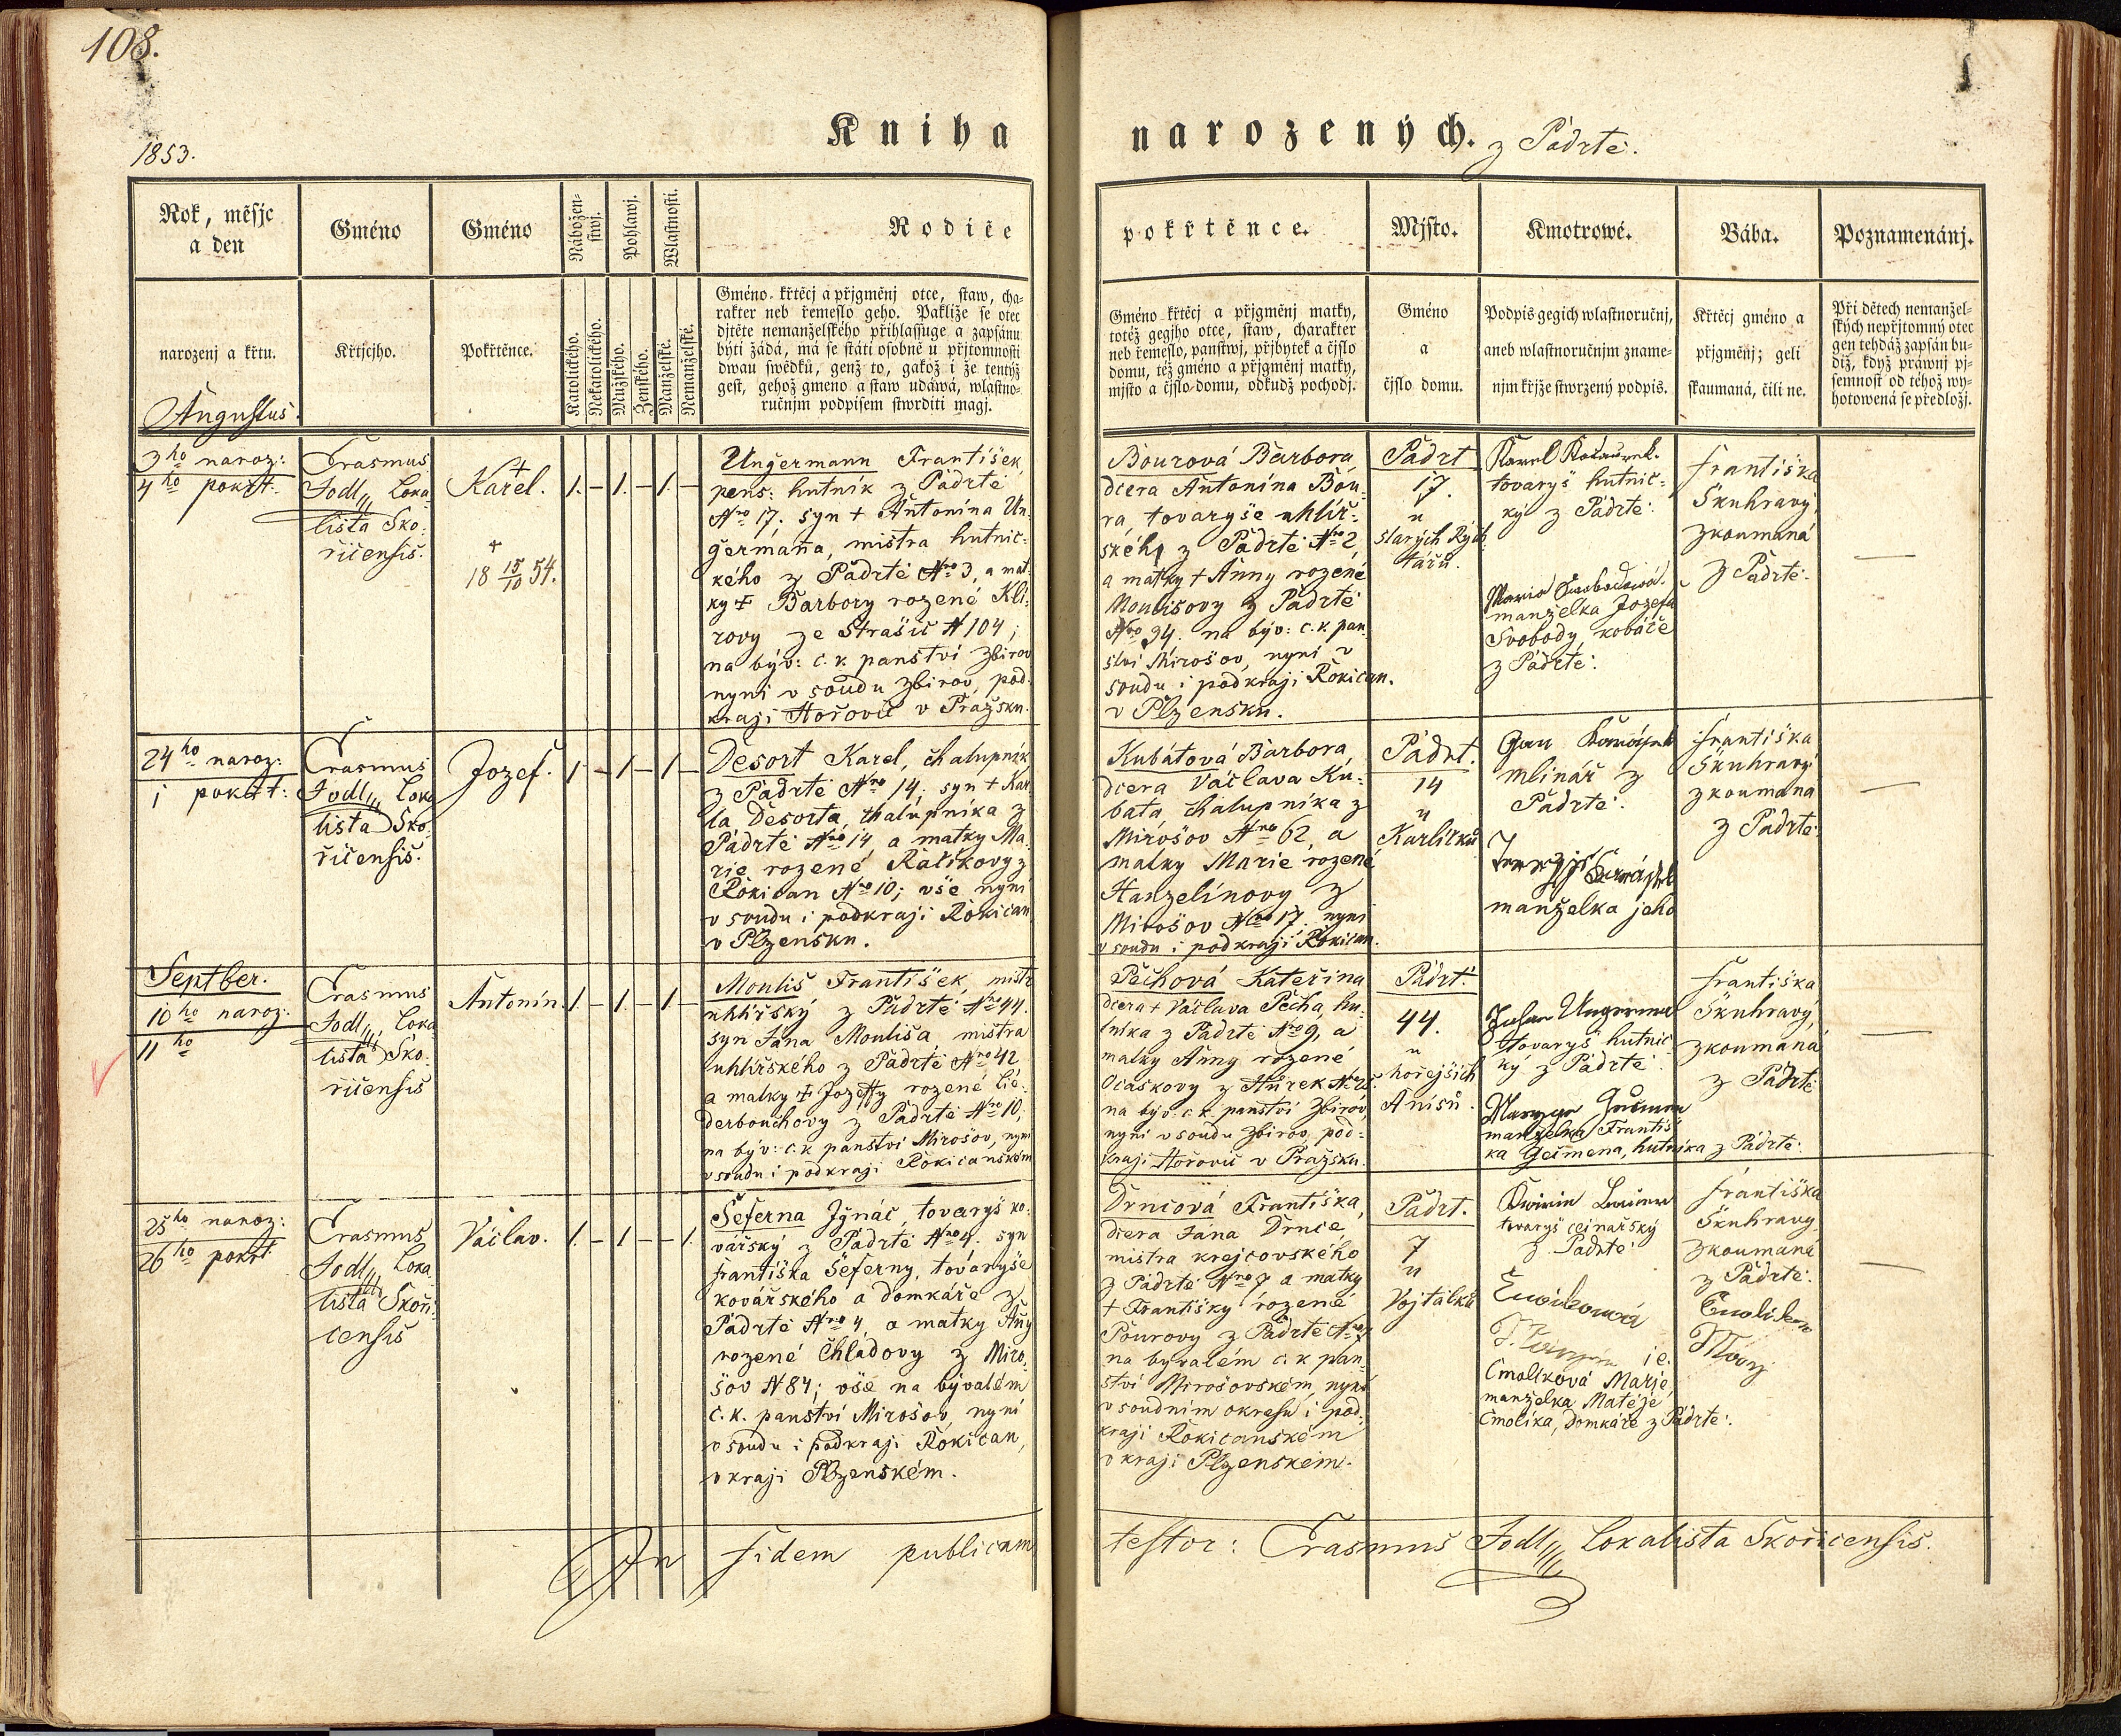 108.
1853.
Kniha
narozených.
z Padrtě.
Rok, měsjc
a den
narozenj a křtu.
Gméno
Křtjcjho.
Gméno
Pokřtěnce.
Nábožen-
stwj.
Pohlawj.
Wlastnosti.
Katolického.
Nekatolického.
Mužského.
Ženského.
Manželské.
Nemanželské.
Rodiče
Gméno křtěcj a přjgměnj otce, staw, cha-
rakter neb řemeslo geho. Pakliže se otec
djtěte nemanželského přihlassuge a zapsánu
býti žádá, má se státi osobně u přjtomnosti
dwau swědků, genž to, gakož i že tentýž
gest, gehož gmeno a staw udáwá, wlastno-
ručnjm podpisem stwrditi magj.
pokřtěnce.
Gméno křtěcj a přjgměnj matky,
totéž gegjho otce, staw, charakter
neb řemeslo, panstwj, přjbytek a čjslo
domu, též gméno a přjgměnj matky,
mjsto a čjslo domu, odkudž pochodj.
Mjsto.
Gméno
a
čjslo domu.
Kmotrowé.
Podpis gegich wlastnoručnj,
aneb wlastnoručnjm zname-
njm křjže stwrzený podpis.
Bába.
Křtěcj gméno a
přjgměnj; geli
skaumaná, čili ne.
Poznamenánj.
Při dětech nemanžel-
ských nepřjtomný otec
gen tehdáž zapsán bu-
diž, když práwnj pj-
semnost od téhož wy-
hotowená se předložj.
Augustus.
3ho naroz:
4ho pokřt:
Erasmus
Jodl, Loka
lista Sko:
řičensis.
+
Karel.
+
18 15/10 54.
1. – 1. – 1. –
Ungermann František,
pens: hutník z Padrtě
Nro 17. syn + Antonína Un
germaňa, mistra hutnic-
kého z Padrtě Nro 3, a mat
ky + Barbory rozené Kli
rovy ze Strašic N 104;
na býv: c.k. panství Zbirov
nyní v soudu Zbirov, pod
kraji Hořovic v Pražsku.
Bourová Barbora
dcera Antonína Bou-
ra, tovaryše uhlíř-
ského z Padrtě Nro 2,
a matky + Anny rozené
Moulisovy z Padrtě
Nro 34. na býv: c.k. pan
ství Mirošov, nyní v
soudu i podkraji Rokican.
v Plzensku.
Padrt
17.
u
starých Rych
tářů.
tovaryš hutnic-
ký z Padrtě.
manželka Jozefa
Svobody, kováče
z Padrtě.
Františka
Škuhravý,
zkoumaná
z Padrtě.
24ho naroz:
i pokřt:
Erasmus
Jodl, Loka
lista Sko
řičensis.
Jozef.
1 – 1 – 1 –
Desort Karel, chalupník
z Padrtě Nro 14; syn + Kar
la Desorta, chalupníka z
Padrtě Nro 14, a matky Ma
rie rozené Ratíkovy z
Rokican Nro 10; vše nyní
v soudu i podkraji Rokican
v Plzensku.
Kubátová Barbora,
dcera Václava Ku-
bata, chalupníka z
Mirošov Nro 62, a
matky Marie rozené
Hanzelínovy z
Mirošov Nro 17. nyní
v soudu i podkraji Rokican.
Padrt.
14
u
Karlíčků
mlinář z
Padrtě.
manželka jeho
Františka
Škuhravý
zkoumaná
z Padrtě.
Septber.
10ho naroz.
11ho
Erasmus
Jodl, Loka
lista Sko
řičensis
Antonín.
1. – 1. – 1. –
Moulis František, mistr
uhlířský z Padrtě Nro 44.
syn Jana Moulisa, mistra
uhlířského z Padrtě Nro 42
a matky + Jozeffy rozené Lie-
derbouchovy z Padrtě Nro 10;
na býv: c.k. panství Mirošov, nyní
v soudu i podkraji Rokicanském
Pěchová Kateřina
dcera + Václava Pěcha, hu
tníka z Padrtě Nro 9, a
matky Anny rozené
na býv: c.k. panství Zbirov,
nyní v soudu Zbirov, pod-
kraji Hořovic v Pražsku.
Padrt.
44.
u
hořejších
Anisů.
tovaryš hutnic
ký z Padrtě.
manželka Františ
ka Geimena, hutníka z Padrtě.
Františka
Škuhravý,
zkoumaná
z Padrtě
25ho naroz:
26ho pokřt
Erasmus
Jodl, Loka
lista Skoři
censis
Václav.
1. – 1 – – 1.
Šeferna Ignác, tovaryš ko-
vářský z Padrtě Nro 4. syn
Františka Šeferny, tovaryše
kovářského a domkáře z
Padrtě Nro 4, a matky Any
rozené Chladovy z Miro
šov N 84; vše na bývalém
c.k. panství Mirošov, nyní
v soudu i podkraji Rokican,
v kraji Plzenském.
Drncová Františka,
dcera Jána Drnce,
mistra krejcovského
z Padrtě Nro 7 a matky
+ Františky rozené
Pourovy z Padrtě Nro 7
na byvalém c.k. pan
ství Mirošovském, nyní
v soudním okresu i pod
kraji Rokicanském
v kraji Plzenském.
Padrt.
7
u
Vojtálků
tovaryš
z Padrtě
j.e.
Cmolíková Marie,
manželka Matěje
Cmolíka, domkáře z Padrtě.
Františka
Škuhravý
zkoumaná
z Padrtě.
In fidem publicam
testor: Erasmus Jodl, Lokalista Skořicensis.